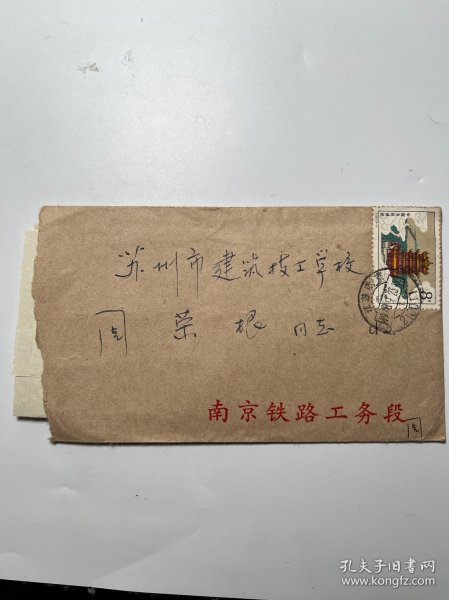 苏州市建筑技工学校
周荣根同志 收
南京铁路工务段
周
8
孔夫子旧书网
www.kongfz.com